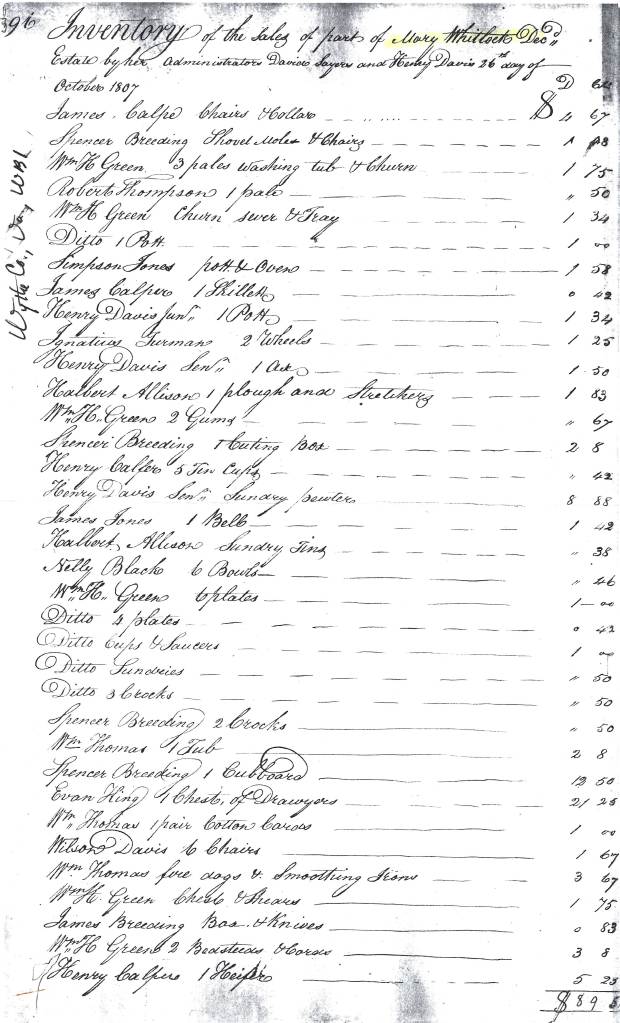 396
Inventory of the Sales of part of Mary Whitlock Decd
Estate by her Administrators David Sayers and Henry Davis 26th day of
October 1807 D
James Calpe Chairs & Collar $ 4 67
Spencer Breeding Shovel & Chairs 1
Wm H Green 3 pales washing tub & Churn 1 75
Robert Thompson 1 pale " 50
Wm H Green Churn & Tray 1 34
Ditto 1 Pott 1 00
Simpson Jones pott & Oven 1 58
James Calpe 1 Skillett 0 42
Henry Davis Junr 1 Pott 1 34
Ignatius Turman 2 Wheels 1 25
Henry Davis Senr 1 Ax 1 50
Halbert Allison 1 plough and Stretchers 1 83
Wm H Green 2 Gums " 67
Spencer Breeding 1 Cuting Box 2 8
Henry Calfee 5 Tin Cups " 42
Henry Davis Senr Sundry pewter 8 88
James Jones 1 Bell 1 42
Halbert Allison Sundry Tins " 38
Nelly Black 6 Bowls " 46
Wm H Green 6 plates 1 00
Ditto 4 plates 0 42
Ditto Cups & Saucers 1 00
Ditto Sundries " 50
Ditto 3 Crocks " 50
Spencer Breeding 2 Crocks " 50
Wm Thomas 1 Tub 2 8
Spencer Breeding 1 Cubboard 12 50
Evan King 1 Chest of Drawyers 21 25
Wm Thomas 1 pair Cotton Cards 1 00
Wilson Davis 6 Chairs 1 67
Wm Thomas fire dogs & Smoothing Irons 3 67
Wm H Green Chest & Shears 1 75
James Breeding Box & Knives 0 83
Wm H Green 2 Bedsteads & Cords 3 8
Henry Calpe 1 Heifer 5 25
$ 89
Wythe Co., Va, WB1